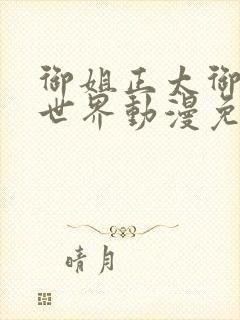 御姐正太御
世界動漫免
晴月